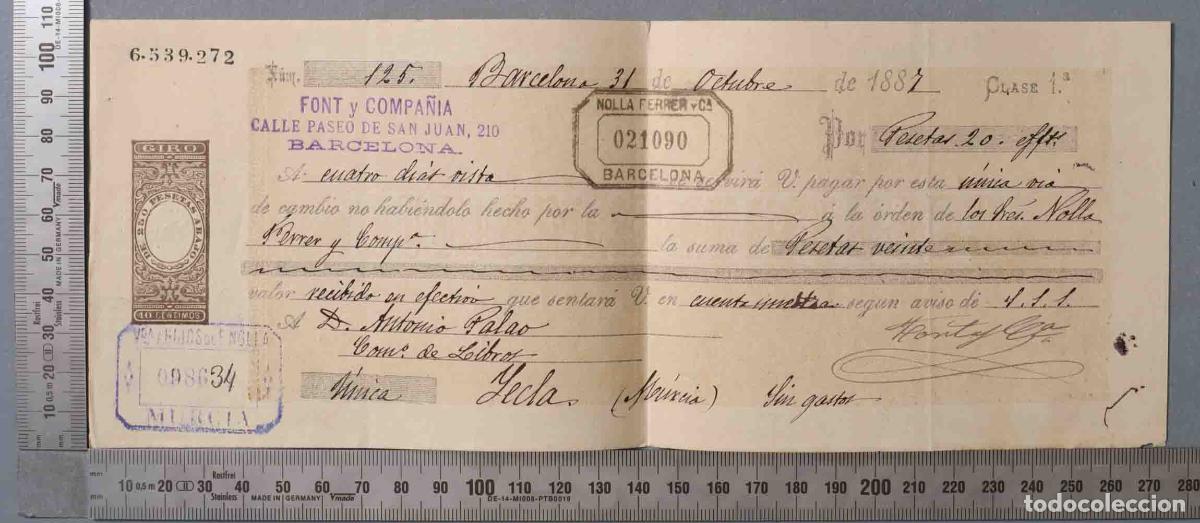 6.539.272
Núm. 125. Barcelona 31 de Octubre de 1887 Clase 1.ª
FONT y COMPAÑIA
CALLE PASEO DE SAN JUAN, 210
BARCELONA.
NOLLA FERRER y Cª
021090
BARCELONA
Por Pesetas 20. efft.
GIRO
DE 250 PESETAS ABAJO
10 CENTIMOS
A cuatro días vista se servirá V. pagar por esta única vía
de cambio no habiéndolo hecho por la á la órden de los Sres. Nolla
Ferrer y Compª. la suma de Pesetas veinte
valor recibido en efectivo que sentará V. en cuenta nuestra segun aviso de S.S.S.
A D. Antonio Palao
Font y Cª
Comº. de Libros
Única Yecla (Múrcia) Sin gastos
Vda E HIJOS DE F. NOLLA
098634
MURCIA
10 0,5 m 20 30 40 50 60 70 80 90 100 110
Rostfrei
Stainless
MADE IN GERMANY Vmade
DE-14-MI008-PTB0019
mm
10 0,5 m 20 30 40 50 60 70 80 90 100 110 120 130 140 150 160 170 180 190 200 210 220 230 240 250 260 270 280
Rostfrei
Stainless
MADE IN GERMANY Vmade
DE-14-MI008-PTB0019
todocoleccion